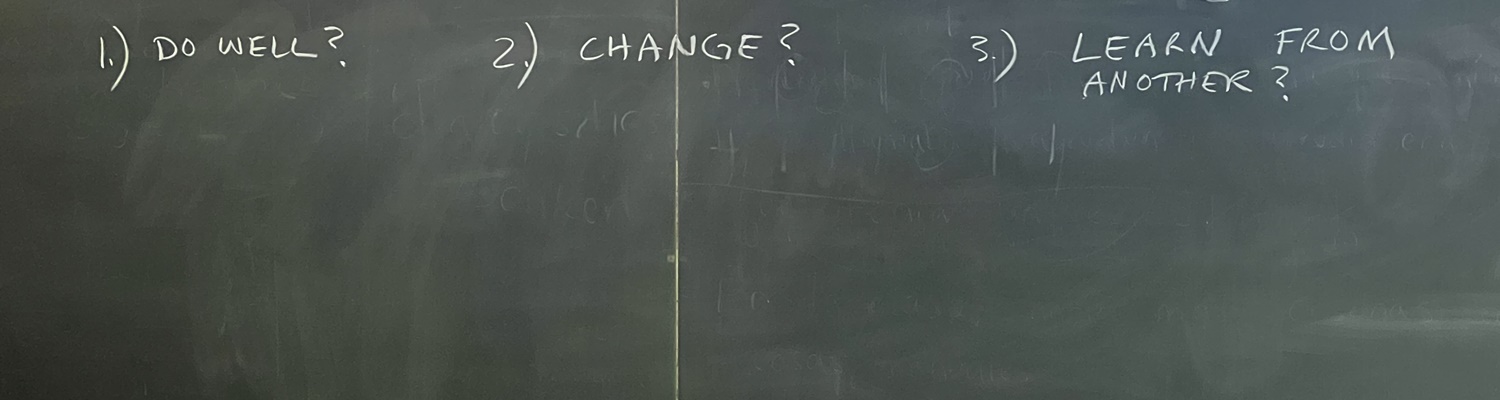 1.) DO WELL?
2.) CHANGE?
3.) LEARN FROM
ANOTHER?